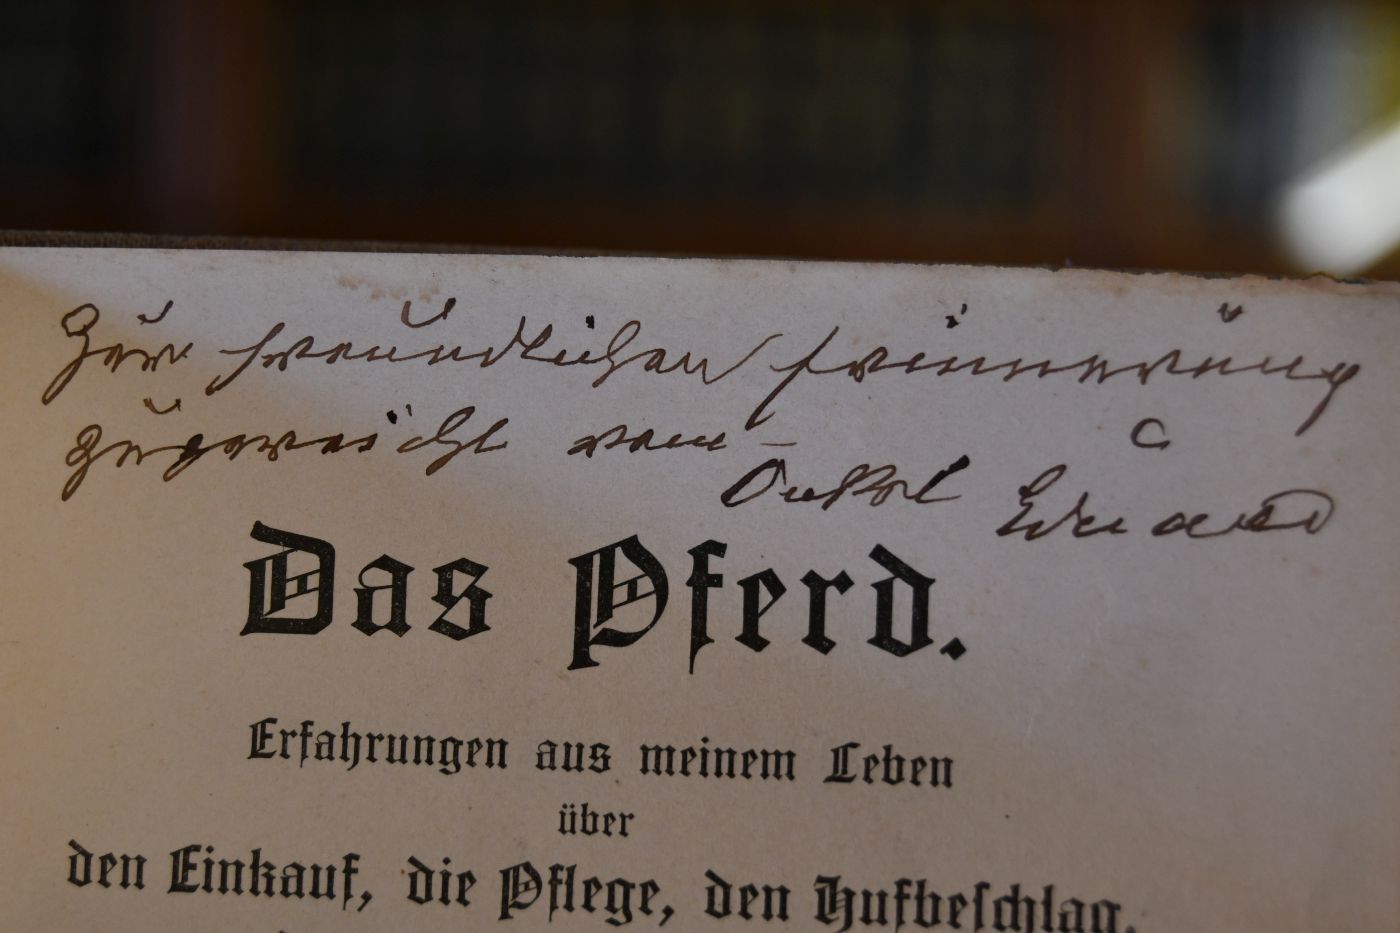 Zur freundlichen Erinnerung
zugereicht vom
Onkel Eduard
Das Pferd.
Erfahrungen aus meinem Leben
über
den Einkauf, die Pflege, den Hufbeſchlag,